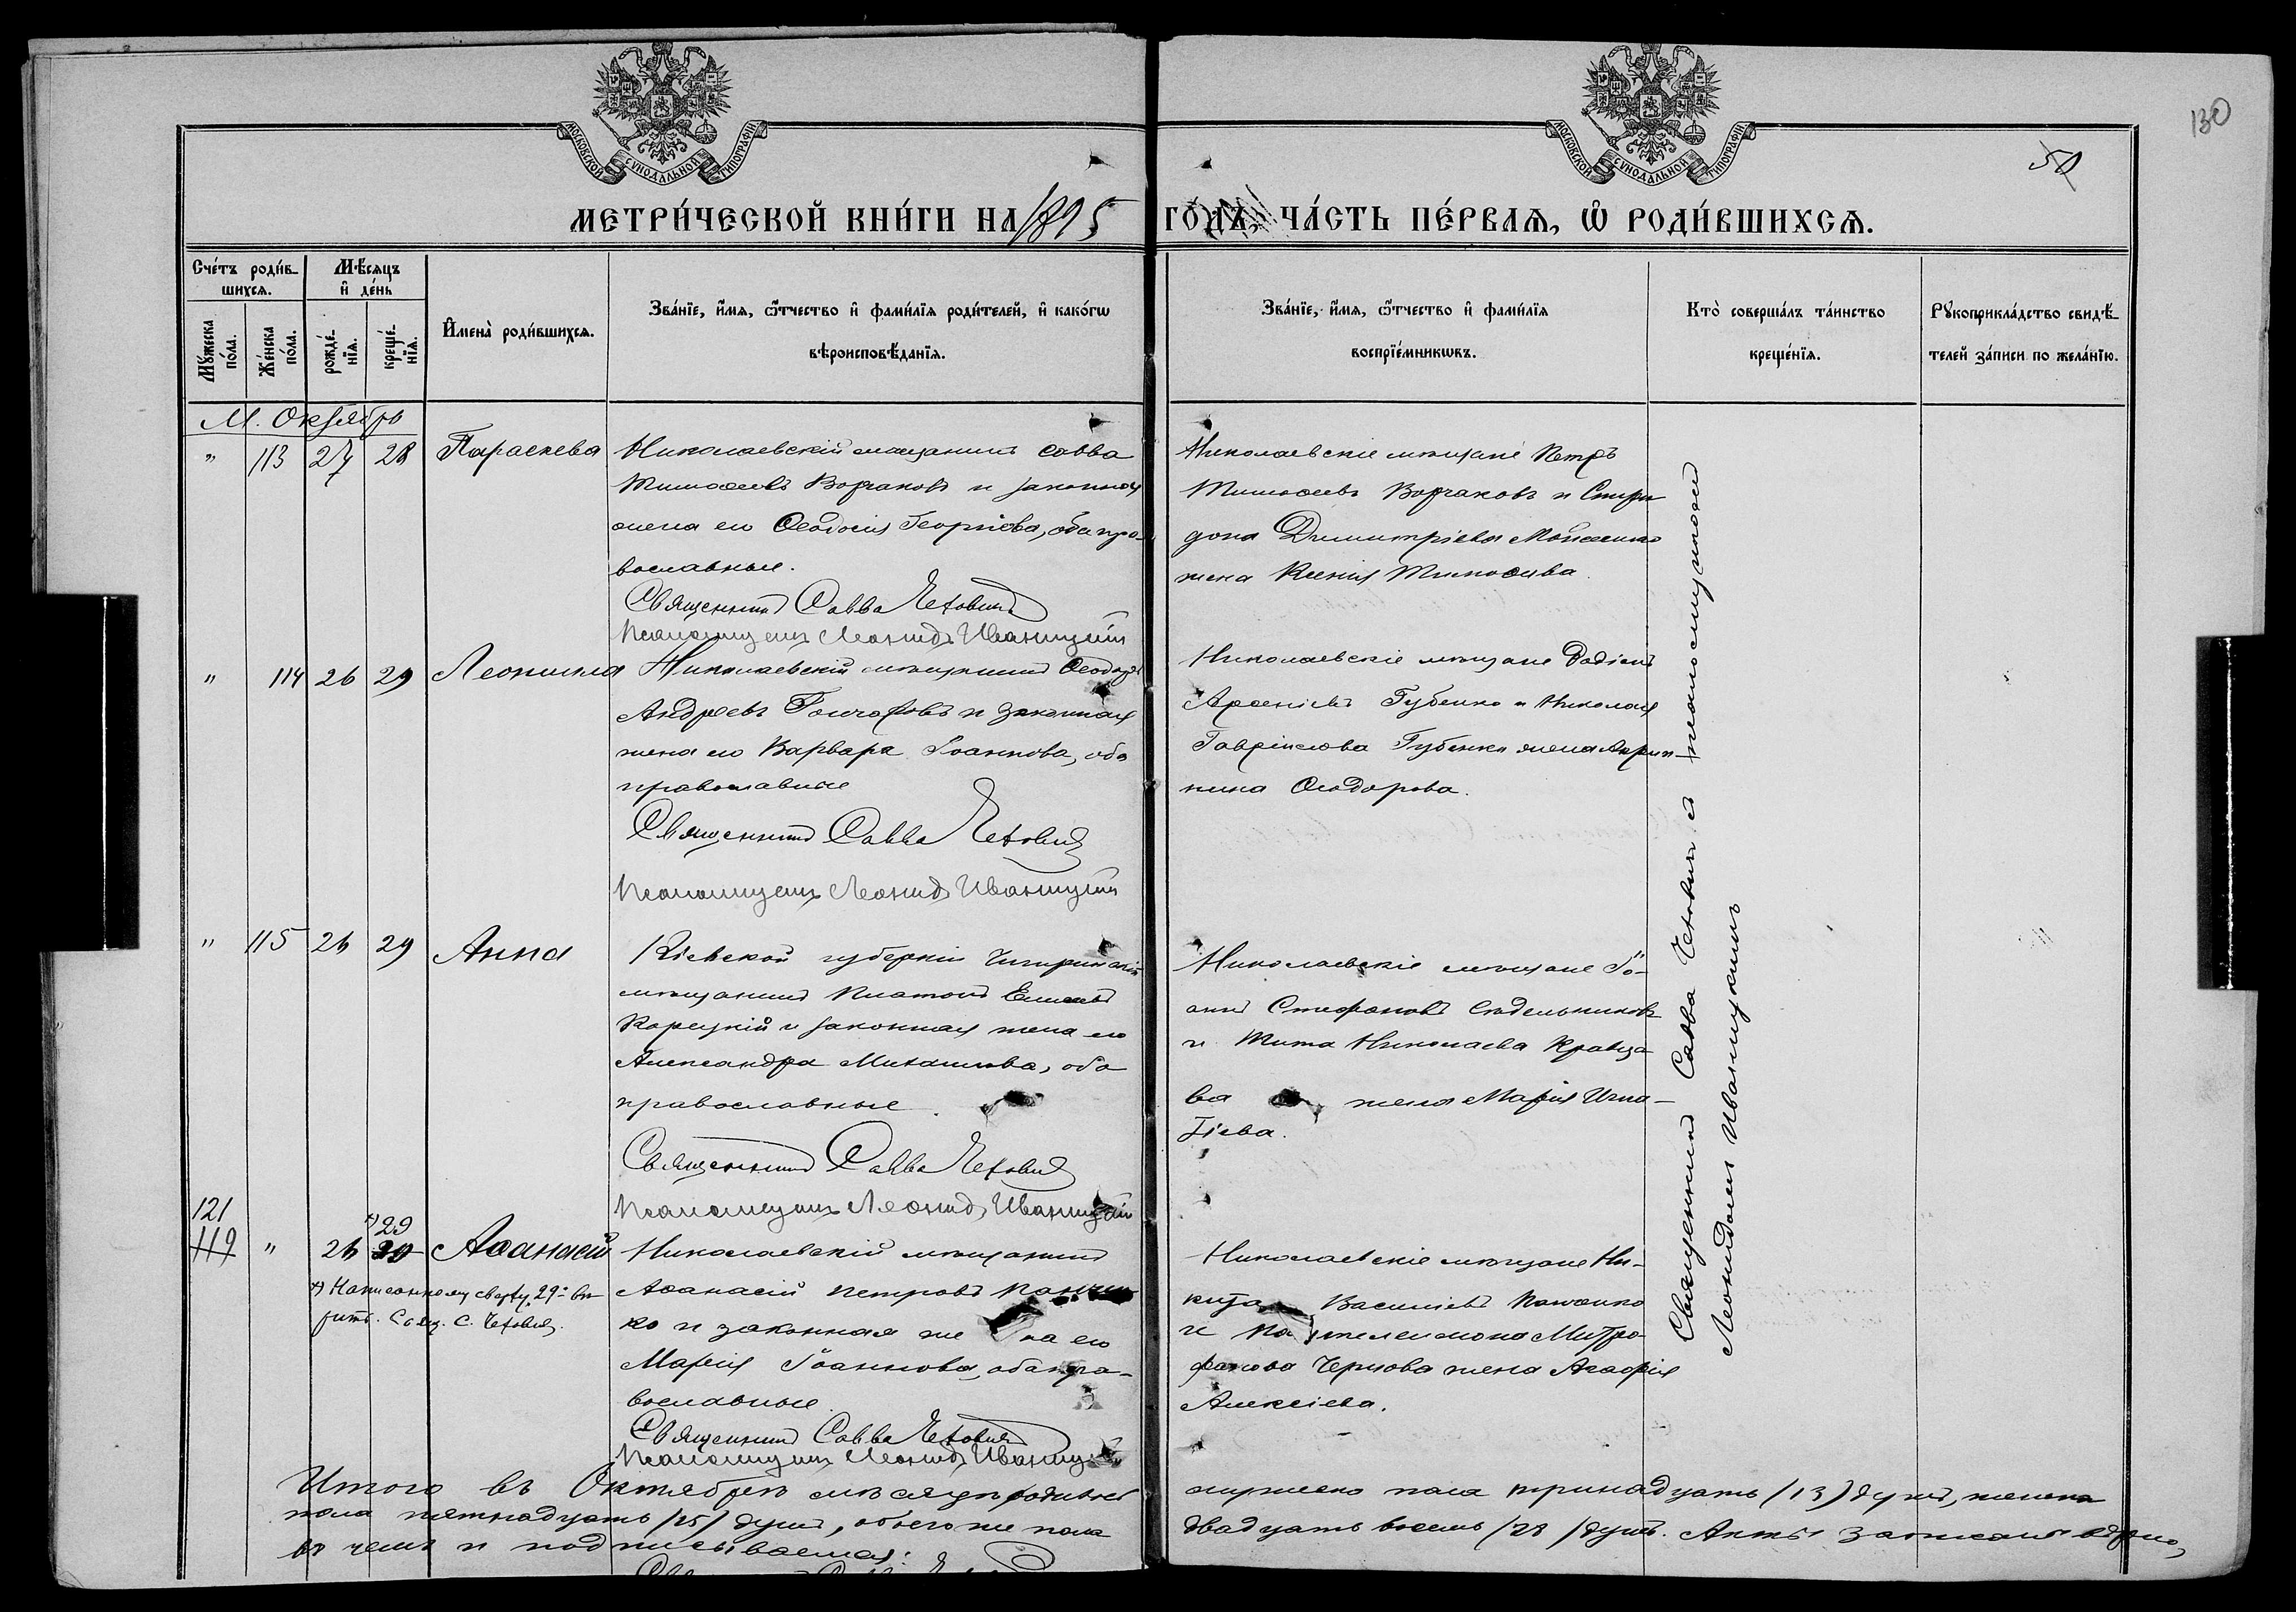 МОСКОВСКОЙ СѴНОДАЛЬНОЙ ТИПОГРАФІИ
МОСКОВСКОЙ СѴНОДАЛЬНОЙ ТИПОГРАФІИ
130
50
МЕТРИ́ЧЕСКОЙ КНИ́ГИ НА 1895 ГО́ДЪ, ЧА́СТЬ ПЕ́РВАЯ, Ѡ РОДИ́ВШИХСЯ.
Сче́тъ роди́вшихся.
Му́жеска по́ла.
Же́нска по́ла.
Мѣ́сяцъ и҆ де́нь
рожде́нїя.
креще́нїя.
И҆мена̀ роди́вшихся.
Зва́нїе, и҆́мя, ѻ҆́тчество и҆ фами́лїя роди́телей, и҆ како́гѡ
вѣроисповѣ́данїя.
Зва́нїе, и҆́мя, ѻ҆́тчество и҆ фами́лїя
воспрїе́мникѡвъ.
Кто̀ соверша́лъ та́инство
креще́нїя.
Рꙋкоприкла́дство свидѣ́-
телей за́писи по жела́нїю.
М. Октябрь
" 113 27 28 Параскева
Николаевскій мѣщанинъ Савва
Тимоѳеевъ Ворчаковъ и законная
жена его Ѳеодосія Георгіева, оба пра-
вославные.
Священникъ Савва Чехович
Псаломщикъ Леонидъ Иваницкій
Николаевскіе мѣщане Петръ
Тимоѳеевъ Ворчаковъ и Спири
дона Димитріева жена Ксенія Тимоѳеева.
" 114 26 29 Леонилла
Николаевскій мѣщанинъ Ѳеодоръ
Андреевъ Гончаровъ и законная
жена его Варвара Іоаннова, оба
православные
Священникъ Савва Чехович
Псаломщикъ Леонидъ Иваницкій
Николаевскіе мѣщане
Арсеніевъ Губенко и Николая
Гавріилова Губенко жена Агрип-
пина Ѳеодорова.
" 115 26 29 Анна
Кіевской губерніи Чигиринскій
мѣщанинъ Платонъ
Корецкій и законная жена его
Александра Михаилова, оба
православные.
Священникъ Савва Чехович
Псаломщикъ Леонидъ Иваницкій
Николаевскіе мѣщане Іо-
аннъ Стефановъ Садельниковъ
и Тита Николаева Кравца-
ва жена Марія Игна-
тіева.
121
119 " 26 *) 29 30 Аѳанасій
*) Написанному сверху „29“ вѣ-
рить. Свящ. С. Чехович.
Николаевскій мѣщанинъ
Аѳанасій Петровъ
ко и законная жена его
Марія Іоаннова, оба пра-
вославные.
Священникъ Савва Чехович
Псаломщикъ Леонидъ Иваницкій
Николаевскіе мѣщане Ни-
кита Васильевъ
и Пантелеимона Митро-
фанова Чернова жена Агафія
Алексіева.
Священникъ Савва Чеховичъ съ псаломщикомъ
Леонидомъ Иваницкимъ
Итого въ Октябрѣ мѣсяцѣ родилось мужеска пола тринадцать /13/ душъ, женска
пола пятнадцать /15/ душъ, обоего же пола двадцать восемь /28/ душъ. Акты записаны вѣрно,
въ чемъ и подписываемся: